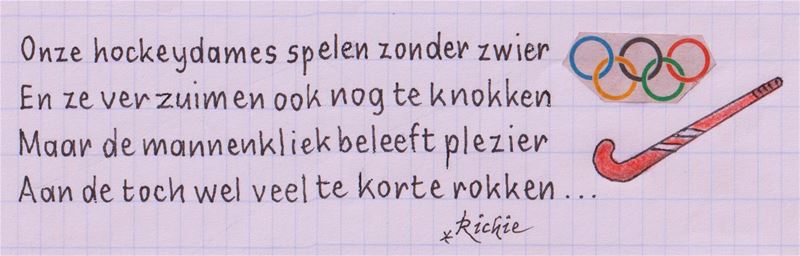 Onze hockeydames spelen zonder zwier
En ze verzuimen ook nog te knokken
Maar de mannenkliek beleeft plezier
Aan de toch wel veel te korte rokken...
*Richie